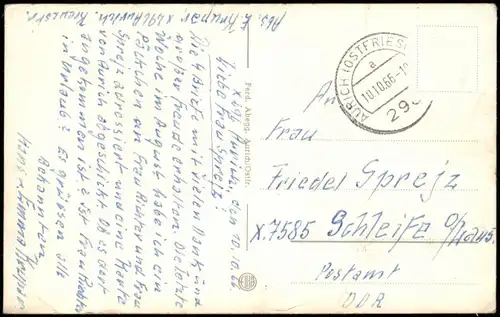 Abs. E. Krüper x 296 Aurich.
x 296 Aurich, den 10.10.66
Liebe Frau Sprejz!
Die 4 Briefe mit vielen Dank und
großer Freude erhalten. Die letzte
Woche im August habe ich ein
Päckchen an Frau Richter und Frau
Sprejz adressiert und eine Karte
von Aurich abgeschickt. Ob es dort
angekommen ist? Ist Frau
in Urlaub? Es grüssen alle
Bekannten
Hans u. Emma
Ferd. Abegg, Aurich/Ostfr.
AURICH (OSTFRIESL
a
10.10.66-1
296
An
Frau
Friedel Sprejz
x.7585 Schleife O/Laus.
Postamt
DDR